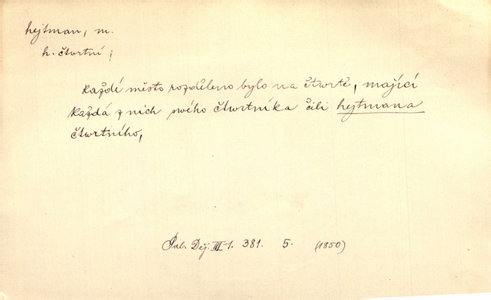 hejtman, m.
h. čtvrtní;
každé město rozděleno bylo na čtvrtě, mající
každá z nich svého čtvrtníka čili hejtmana
čtvrtního,
Pal. Děj. III 1. 381. 5. (1850)